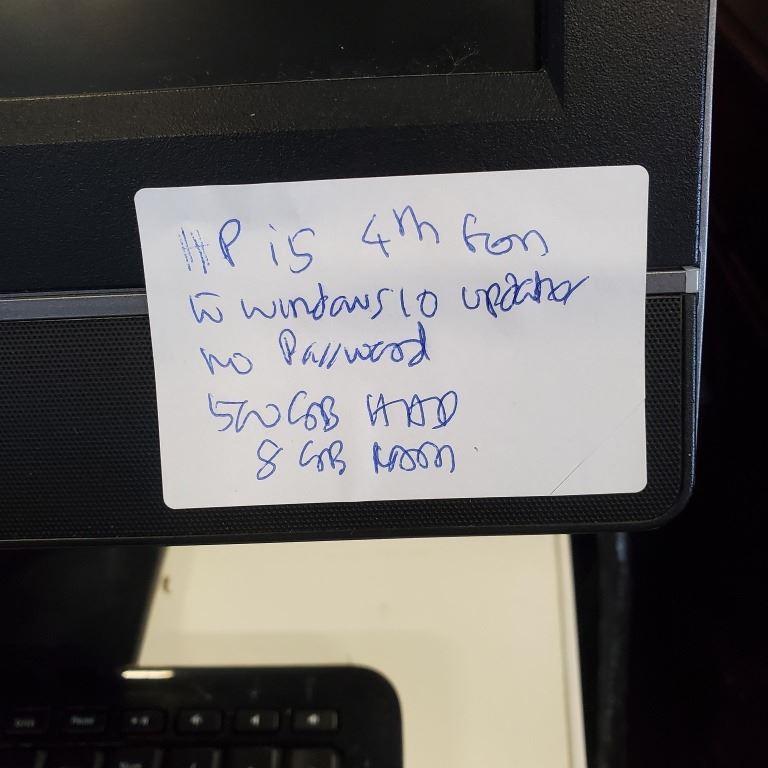 HP i5 4th Gen
Windows 10 updated
no Password
500GB HDD
8 GB RAM
Pause